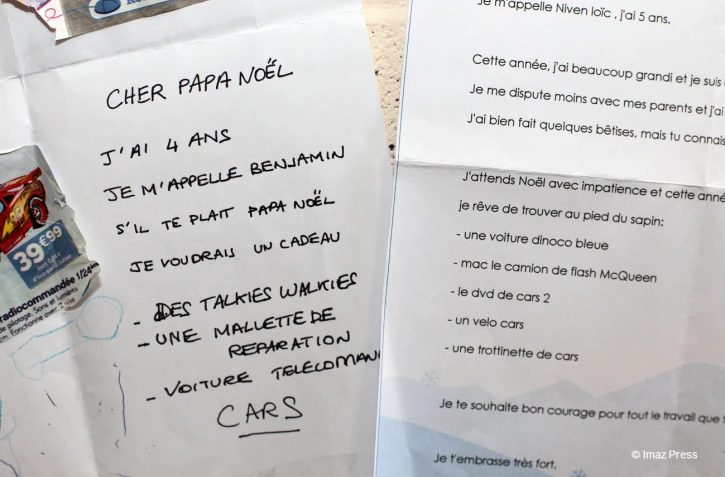 CHER PAPA NOËL
J'AI 4 ANS
JE M'APPELLE BENJAMIN
S'IL TE PLAIT PAPA NOËL
JE VOUDRAIS UN CADEAU
- DES TALKIES WALKIES
- UNE MALLETTE DE
REPARATION
- VOITURE TELECOMAN
CARS
39€99
radiocommandée 1/24
de pilotage. Sons et lumières.
Je m'appelle Niven loïc , j'ai 5 ans.
Cette année, j'ai beaucoup grandi et je suis
Je me dispute moins avec mes parents et j'ai
J'ai bien fait quelques bêtises, mais tu connais
J'attends Noël avec impatience et cette anné
je rêve de trouver au pied du sapin:
- une voiture dinoco bleue
- mac le camion de flash McQueen
- le dvd de cars 2
- un velo cars
- une trottinette de cars
Je te souhaite bon courage pour tout le travail que
Je t'embrasse très fort.
© Imaz Press